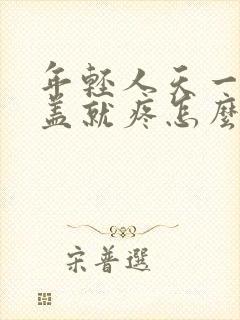 年轻人天一
盖就疼怎麼
宋普選